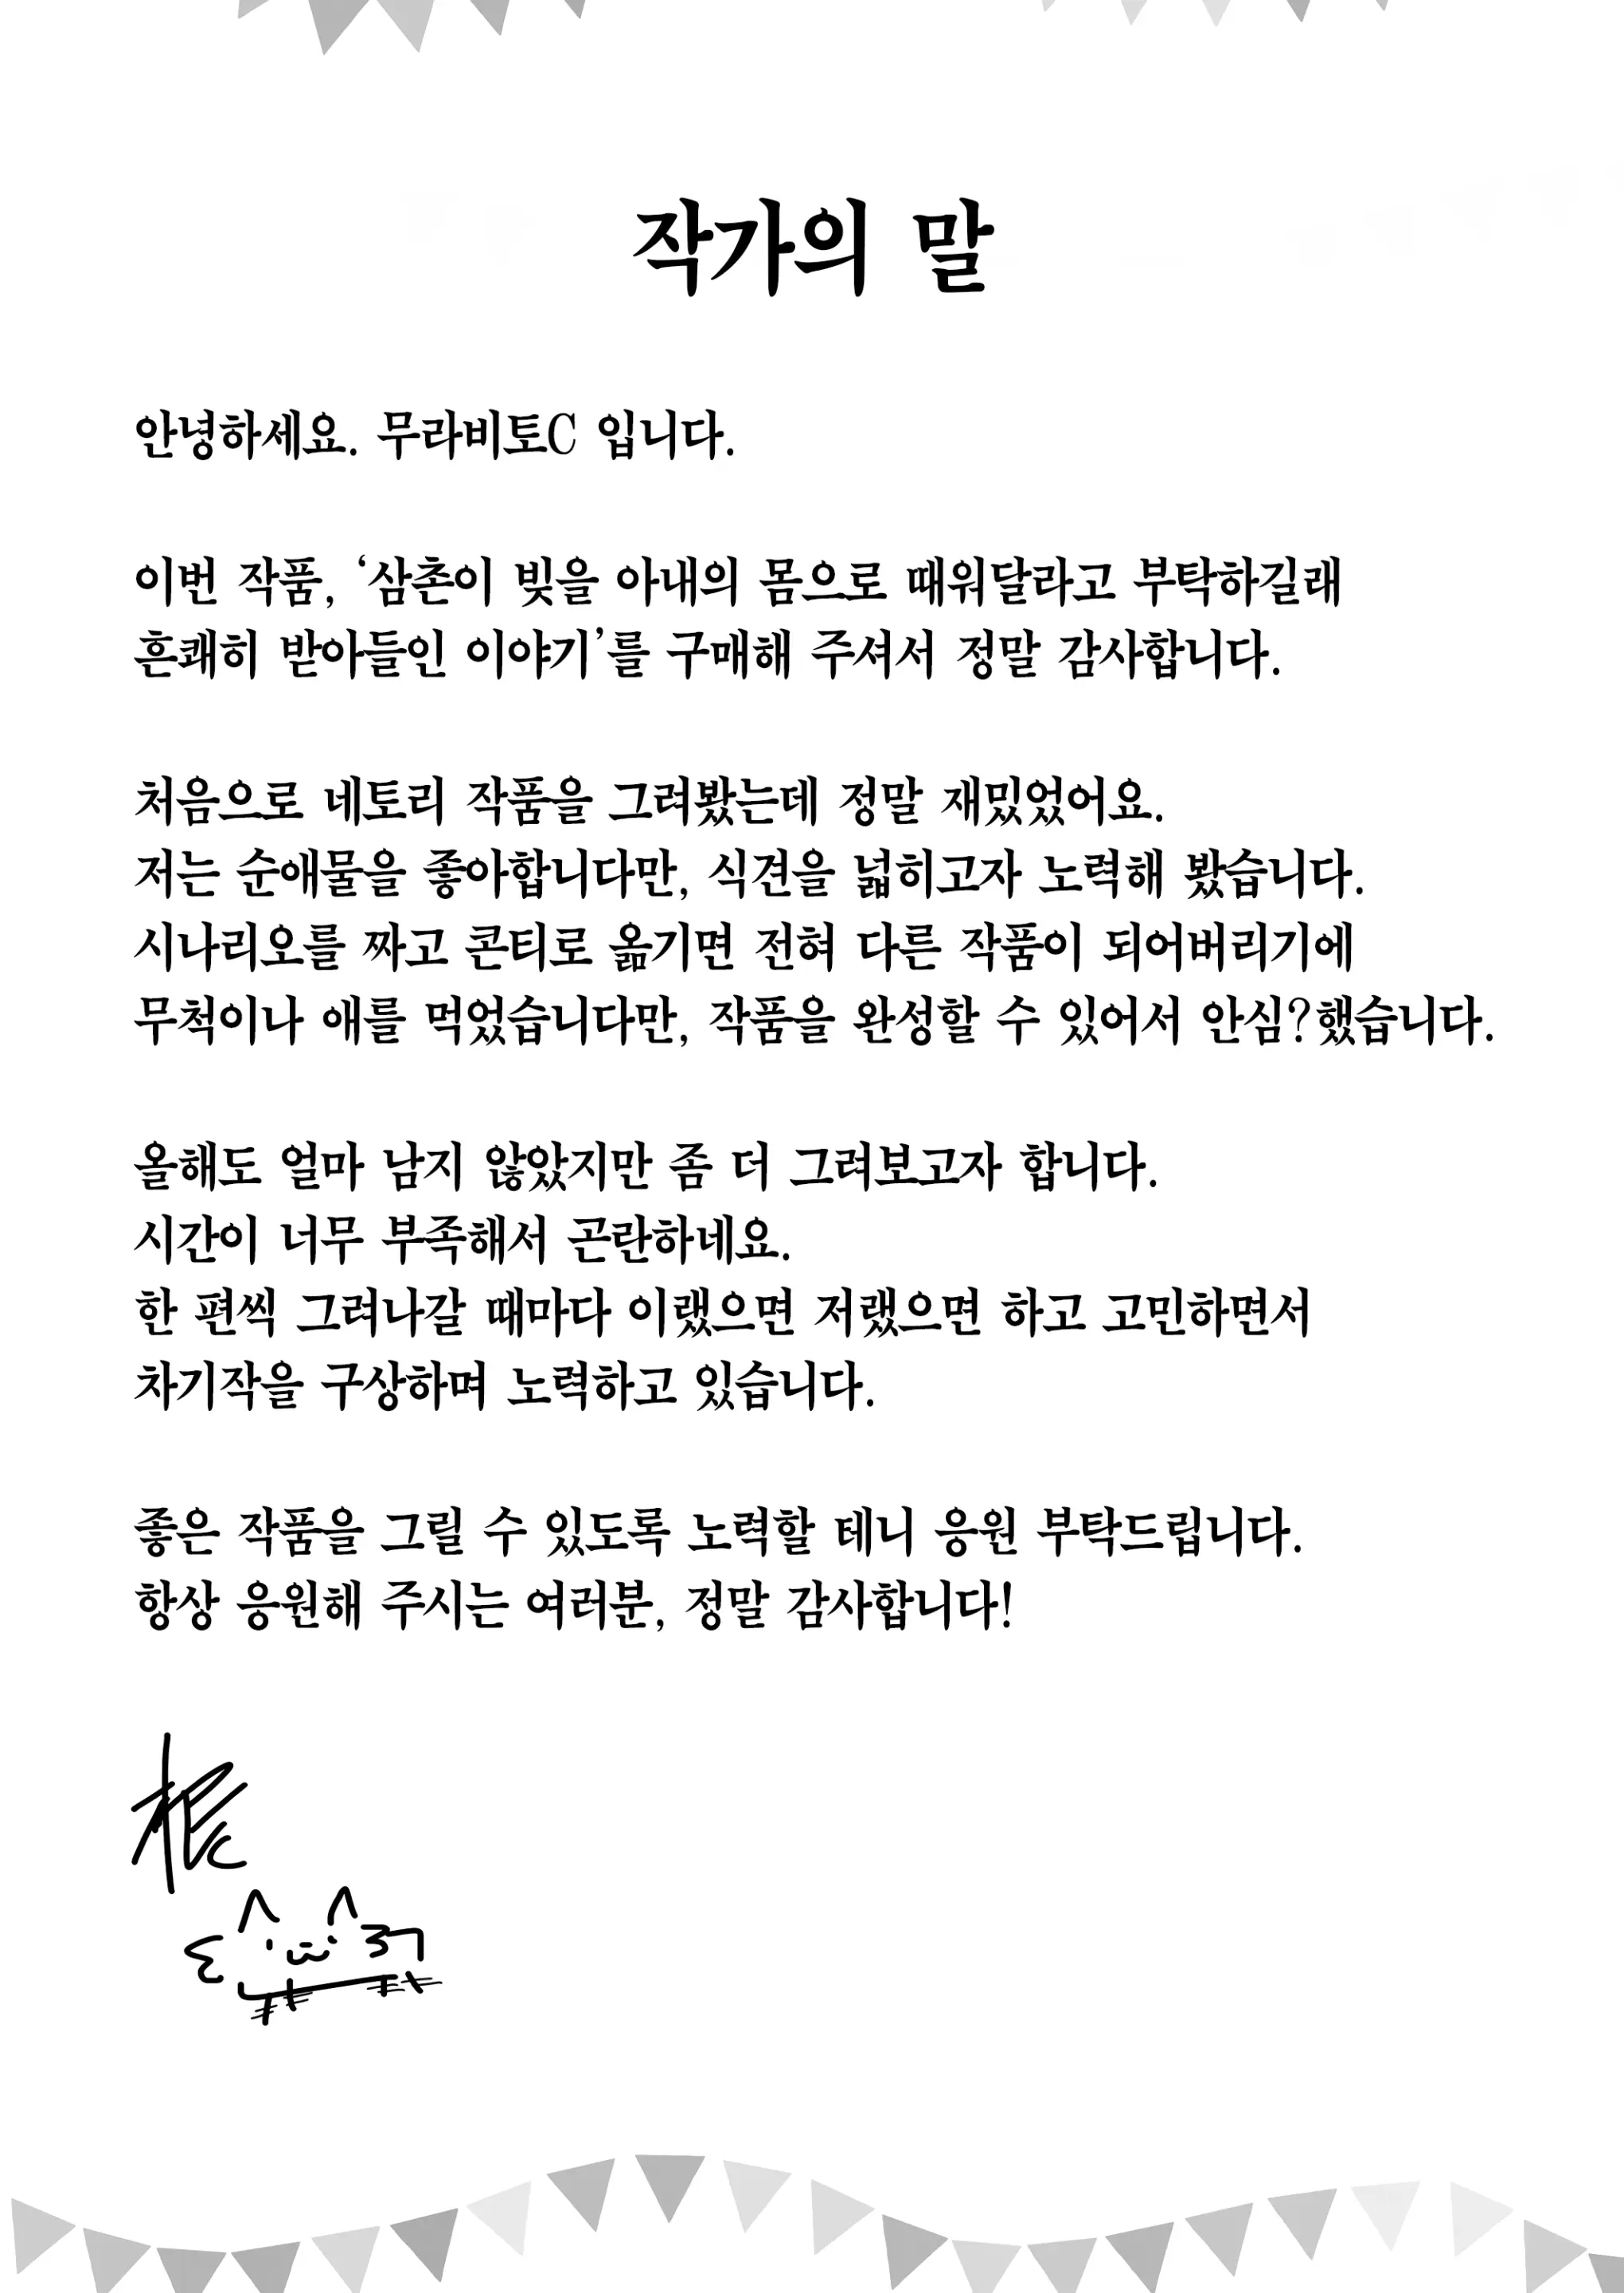 작가의 말
안녕하세요. 무라비토C 입니다.
이번 작품, ‘삼촌이 빚을 아내의 몸으로 때워달라고 부탁하길래
흔쾌히 받아들인 이야기’를 구매해 주셔서 정말 감사합니다.
처음으로 네토리 작품을 그려봤는데 정말 재밌었어요.
저는 순애물을 좋아합니다만, 식견을 넓히고자 노력해 봤습니다.
시나리오를 짜고 콘티로 옮기면 전혀 다른 작품이 되어버리기에
무척이나 애를 먹었습니다만, 작품을 완성할 수 있어서 안심?했습니다.
올해도 얼마 남지 않았지만 좀 더 그려보고자 합니다.
시간이 너무 부족해서 곤란하네요.
한 편씩 그려나갈 때마다 이랬으면 저랬으면 하고 고민하면서
차기작을 구상하며 노력하고 있습니다.
좋은 작품을 그릴 수 있도록 노력할 테니 응원 부탁드립니다.
항상 응원해 주시는 여러분, 정말 감사합니다!